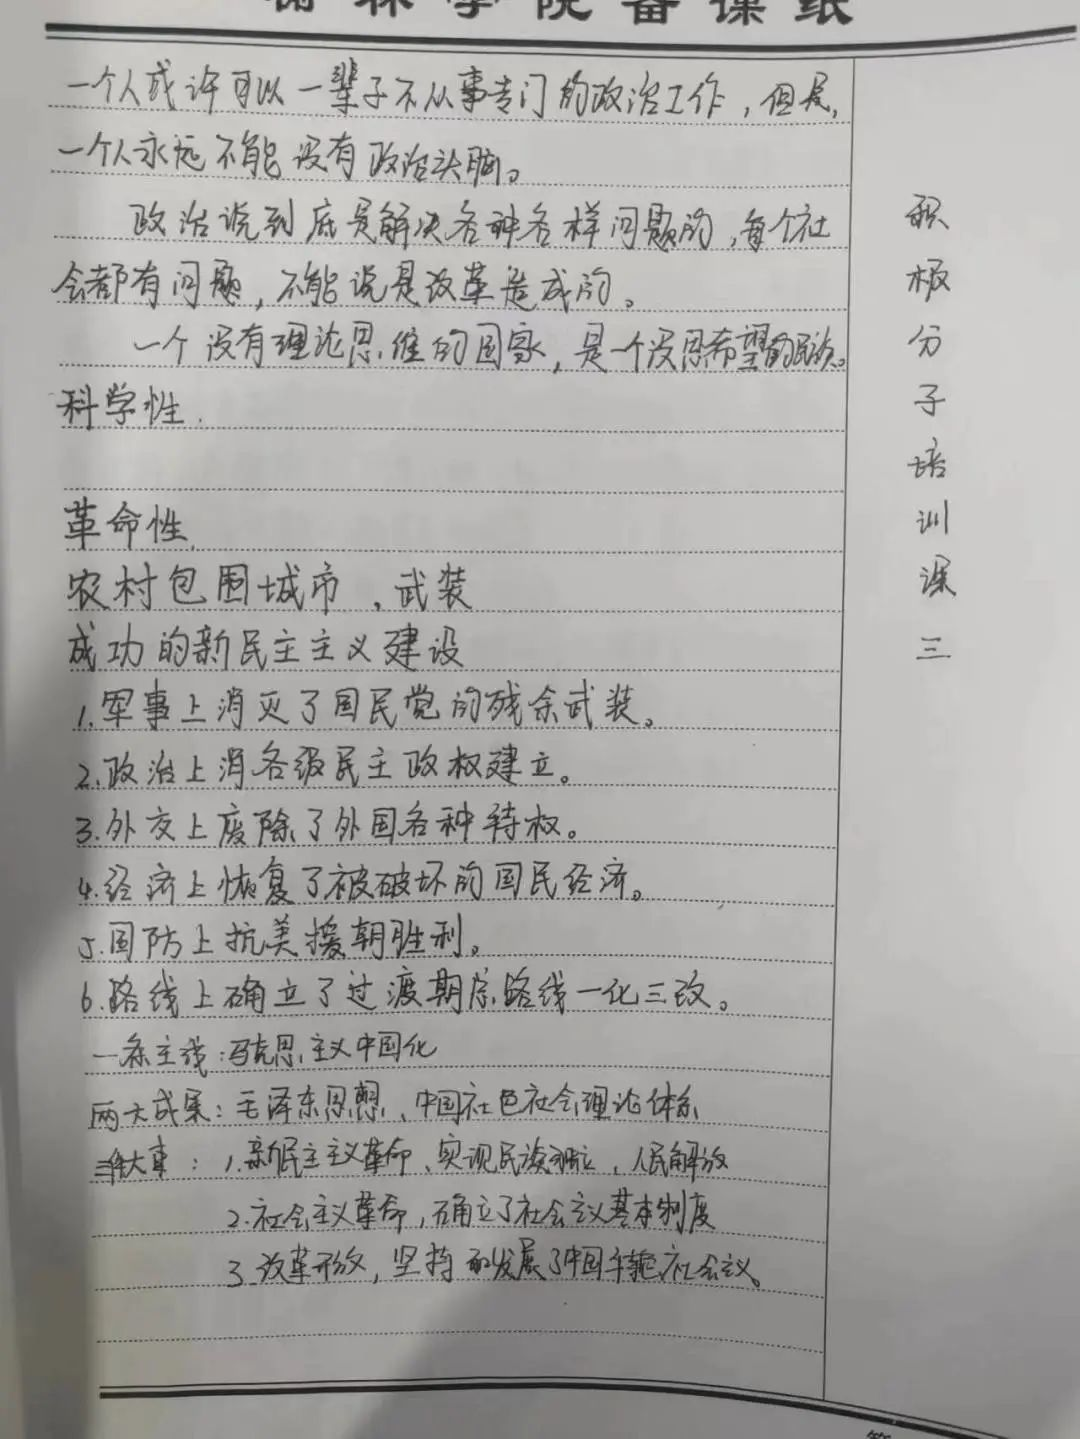 榆林学院备课纸
一个人或许可以一辈子不从事专门的政治工作，但是，
一个人永远不能没有政治头脑。
政治说到底是解决各种各样问题的，每个社
会都有问题，不能说是改革造成的。
一个没有理论思维的国家，是一个没思希望的民族。
科学性.
革命性.
农村包围城市，武装
成功的新民主主义建设
1.军事上消灭了国民党的残余武装。
2.政治上消各级民主政权建立。
3.外交上废除了外国各种特权。
4.经济上恢复了被破坏的国民经济。
5.国防上抗美援朝胜利。
6.路线上确立了过渡期总路线一化三改。
一条主线：马克思主义中国化
两大成果：毛泽东思想、中国社色社会理论体系
三件大事：1.新民主主义革命、实现民族独立，人民解放
2.社会主义革命，确立了社会主义基本制度
3.改革开放，坚持和发展了中国特色社会主义。
积极分子培训课三